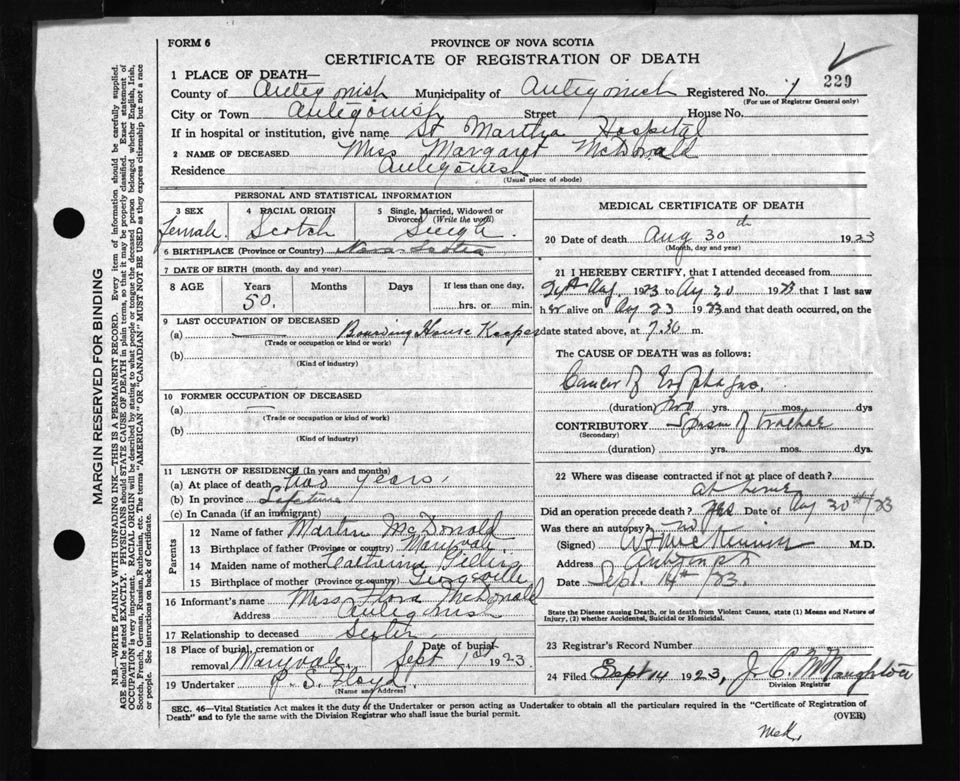 FORM 6
PROVINCE OF NOVA SCOTIA
CERTIFICATE OF REGISTRATION OF DEATH
229
1 PLACE OF DEATH—
County of Antigonish Municipality of Antigonish Registered No.
(For use of Registrar General only)
City or Town Antigonish Street House No.
If in hospital or institution, give name St Martha Hospital
2 NAME OF DECEASED Miss Margaret McDonald
Residence Antigonish
(Usual place of abode)
PERSONAL AND STATISTICAL INFORMATION
3 SEX 4 RACIAL ORIGIN 5 Single, Married, Widowed or Divorced (Write the word)
Female. Scotch Single.
6 BIRTHPLACE (Province or Country) Nova Scotia
7 DATE OF BIRTH (month, day and year)
8 AGE Years Months Days If less than one day,
50. hrs. or min.
9 LAST OCCUPATION OF DECEASED
(a) Boarding House Keeper
(Trade or occupation or kind of work)
(b)
(Kind of industry)
10 FORMER OCCUPATION OF DECEASED
(a) —
(Trade or occupation or kind of work)
(b)
(Kind of industry)
11 LENGTH OF RESIDENCE (In years and months)
(a) At place of death two years,
(b) In province Lifetime
(c) In Canada (if an immigrant)
Parents
12 Name of father Martin McDonald
13 Birthplace of father (Province or country) Maryvale.
14 Maiden name of mother Catherine Gillis
15 Birthplace of mother (Province or country) Georgeville
16 Informant's name Miss Flora McDonald
Address Antigonish
17 Relationship to deceased Sister.
18 Place of burial, cremation or removal Maryvale. Date of burial Sept 1st 1923
19 Undertaker P. S. Floyd
(Name and Address)
MEDICAL CERTIFICATE OF DEATH
20 Date of death Aug 30th 1923
(Month, day and year)
21 I HEREBY CERTIFY, that I attended deceased from
Aug, 1923 to Aug 30 1923 that I last saw
her alive on Aug 23 1923 and that death occurred, on the
date stated above, at 7.30 m.
The CAUSE OF DEATH was as follows:
Cancer of Esophagus.
(duration) two yrs. mos. dys
CONTRIBUTORY Spasm of trachea
(Secondary)
(duration) yrs. mos. dys.
22 Where was disease contracted if not at place of death?
at home
Did an operation precede death? yes Date of Aug 30th/23
Was there an autopsy? no
(Signed) W F MacKinnon M.D.
Address Antigonish
Date Sept. 14th/23.
State the Disease causing Death, or in death from Violent Causes, state (1) Means and Nature of Injury, (2) whether Accidental, Suicidal or Homicidal.
23 Registrar's Record Number
24 Filed Sept 14 1923, J. C. McNaughton
Division Registrar
SEC. 46—Vital Statistics Act makes it the duty of the Undertaker or person acting as Undertaker to obtain all the particulars required in the "Certificate of Registration of
Death" and to fyle the same with the Division Registrar who shall issue the burial permit. (OVER)
MARGIN RESERVED FOR BINDING
N.B.—WRITE PLAINLY WITH UNFADING INK—THIS IS A PERMANENT RECORD. Every item of information should be carefully supplied.
AGE should be stated EXACTLY. PHYSICIANS should STATE CAUSE OF DEATH in plain terms, so that it may be properly classified. Exact statement of
OCCUPATION is very important. RACIAL ORIGIN will be described by stating to what people or tongue the deceased person belonged whether English, Irish,
Scotch, French, German, Russian, Ruthenian, etc. The terms "AMERICAN" OR "CANADIAN" MUST NOT BE USED as they express citizenship but not a race
or people. See instructions on back of Certificate.